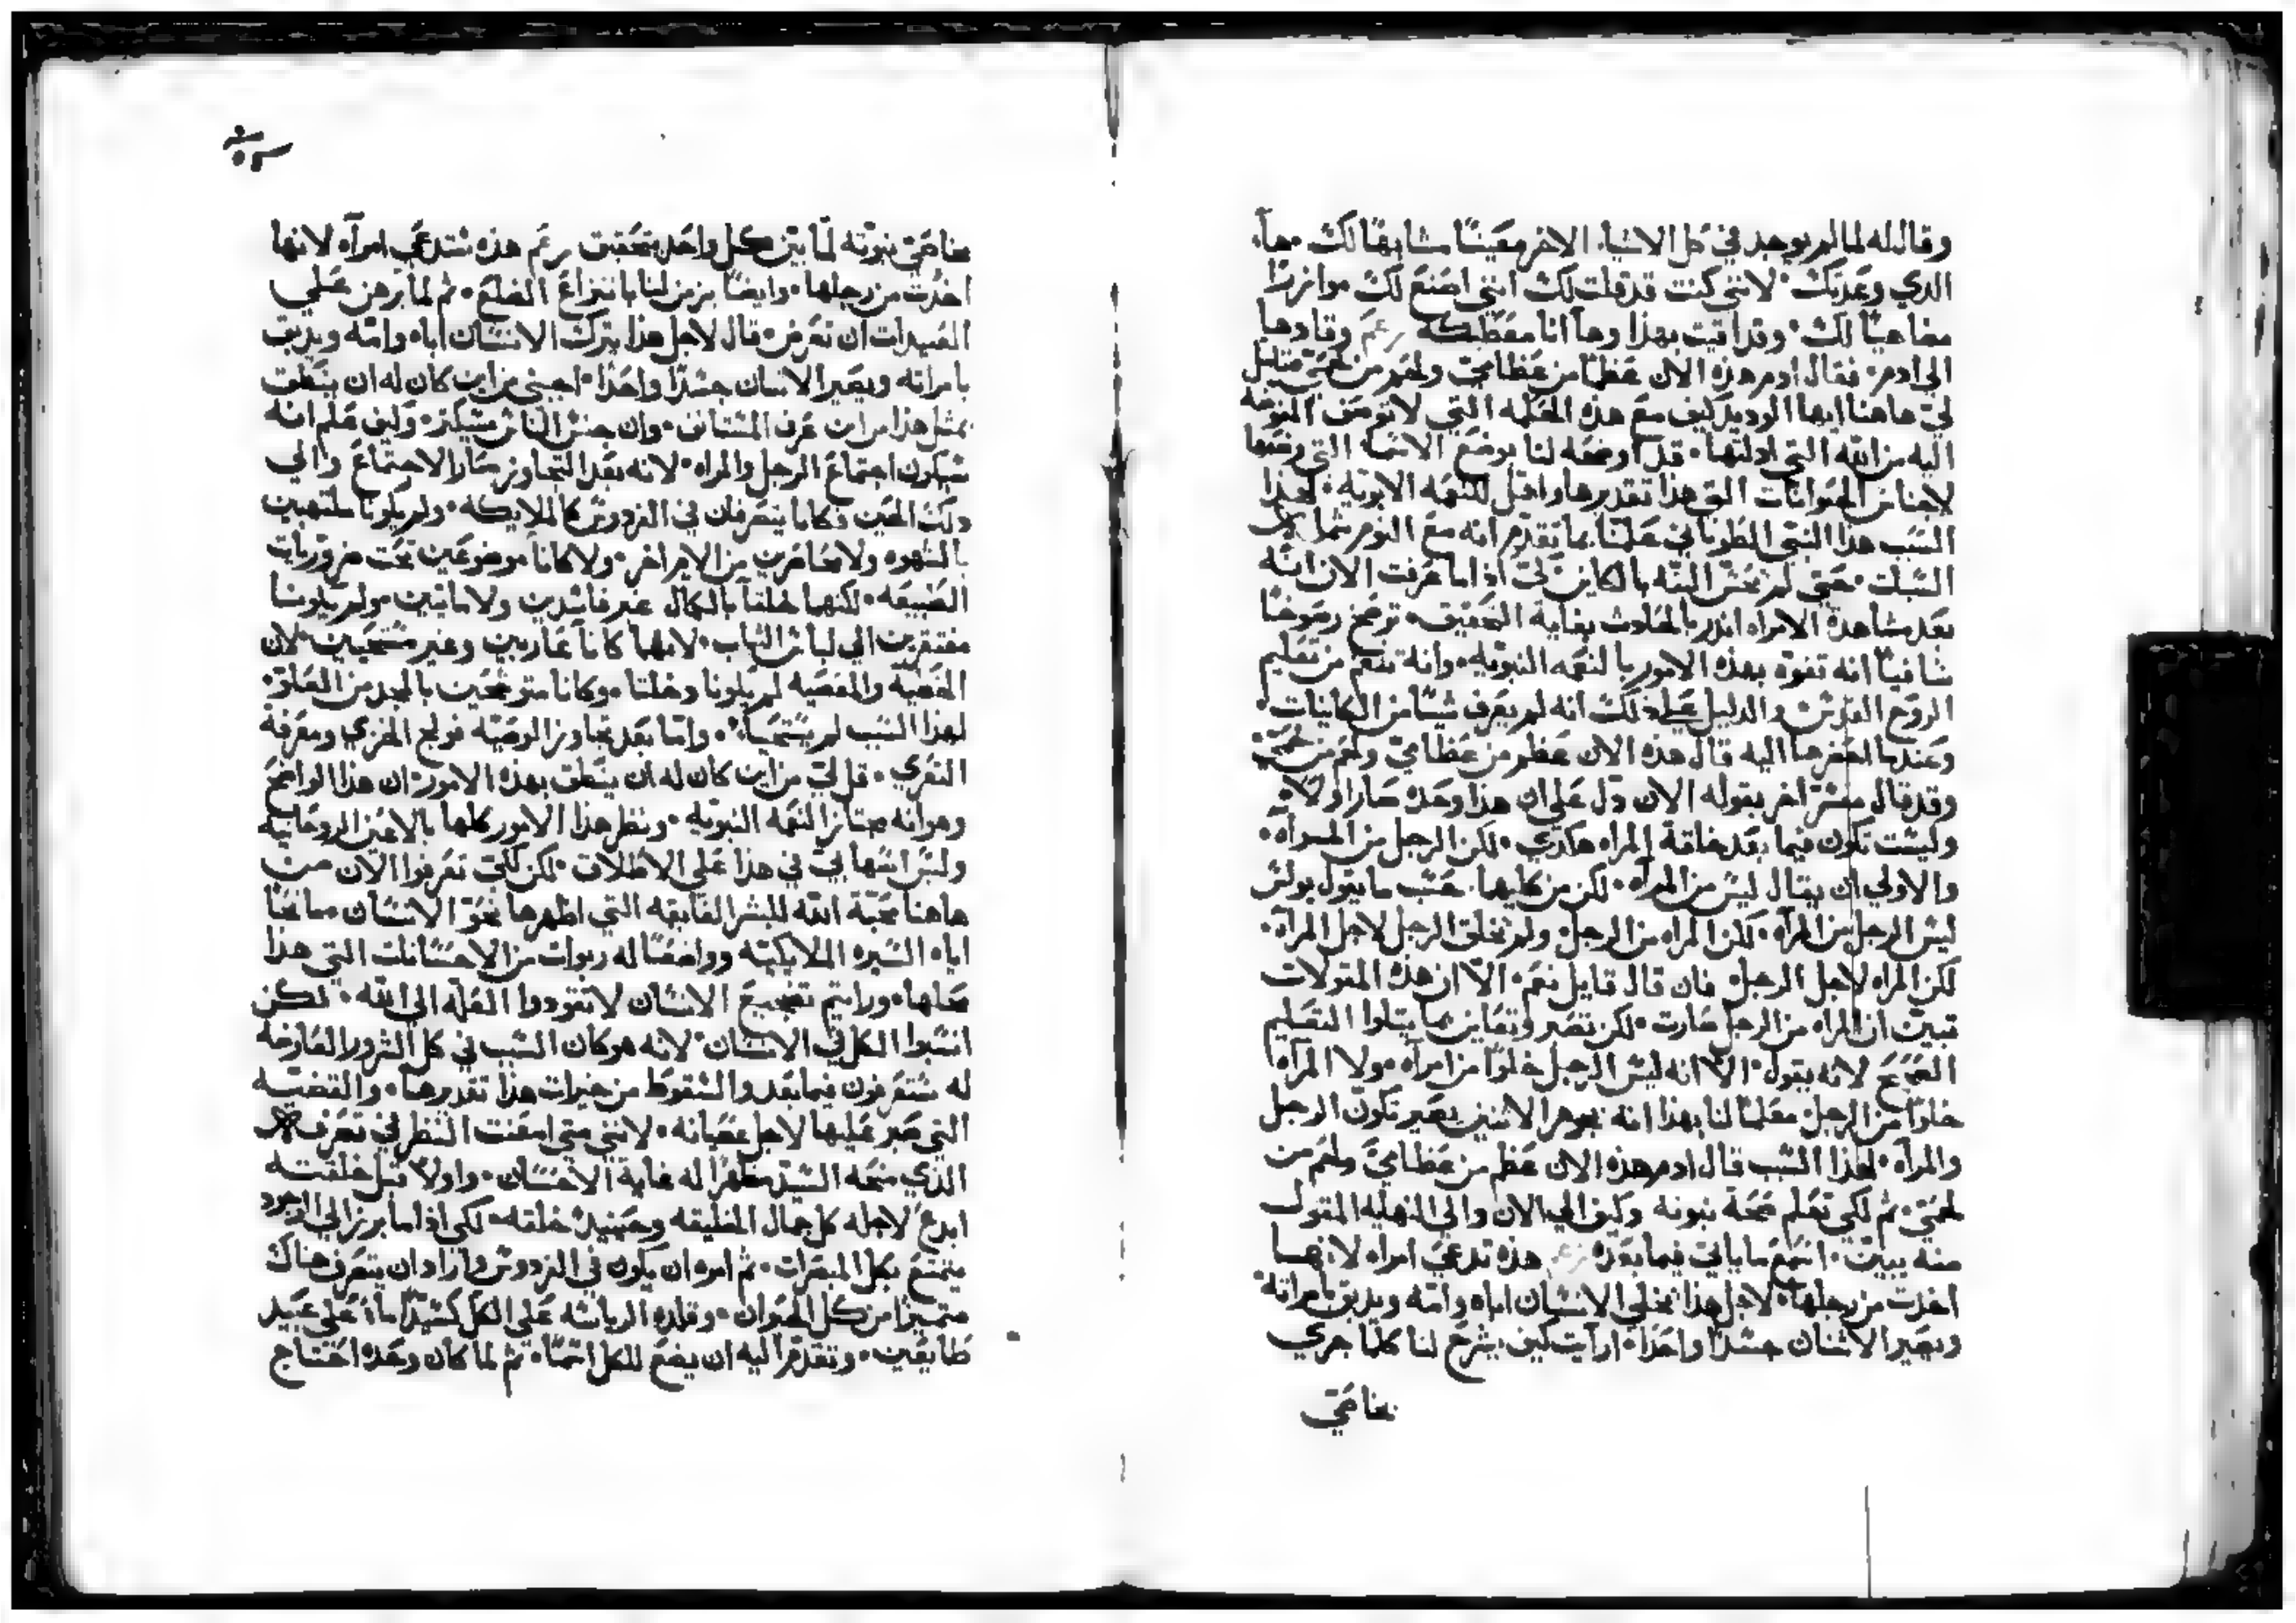 وقال له لما لم يوجد في كل الاشياء الاخر معينًا مشابهًا لك هآ
الدي وعدتك لانني كنت قد قلت لك انني اصنع لك موازرًا
مضاهيًا لك وقد اتيت بهذا وهآ انا معطيكه زعم وقادها
الي ادم فقال ادم هذه الان عظمًا من عظامي ولحم من لحمي
لي هاهنا ايها الوديد كيف مع هذه الحكمه التي لا توصف الموجه
اليه من الله التي ادلتها قد اوضحه لنا بوضع الاسما التي وضعها
لاجناس الحيوانات التي هذا تقديرها واقبل للنعمه الابويه لهذا
السبب هذا النبي الطوباني علمنا بما تقدم انه مع النوم شمله
السبات حتي لم يحس البته بالكاين لكي اذا ما عرفت الان انه
بعد مشاهدة الامراه اندر بالحادث بغاية التحقيق ترمح رموحًا
شافيًا انه تفوه بهذه الامور بالنعمه النبويه وانه تنعم من تعليم
الروح القدس والدليل علي ذلك انه لم يعرف شيئًا من الكاينات
وعندما احضرها اليه قال هذه الان عظم من عظامي ولحم من لحمي
وقد قال مفسّر اخر بقوله الان دل علي ان هذا وحده صار اولًا
وليست تكون فيما بعد خلقة المراه هكدي لكن الرجل من المرآه
والاولي ان يقال ليس من المرآه لكن من كليهما حسب ما يقول بولس
ليس الرجل من المرآه لكن المراه من الرجل ولم يخلق الرجل لاجل المرآه
لكن المراه لاجل الرجل فان قال قايل نعم الا ان هذه المقولات
تبين ان المراه من الرجل صارت لكن تصبر وتعاين ما يتلوا التعليم
الصحيح لانه يقول الا انه ليس الرجل خلوًا من امرآه ولا المرآه
خلوًا من الرجل معلمًا لنا بهذا انه بجوهر الاثنين يصير تكون الرجل
والمرآه لهذا السبب قال ادم هذه الان عظم من عظامي ولحم من
لحمي ثم لكي تعلم صحة نبوته وكيف الي الان والي النهايه المقول
منه يبيت استمع ما ياتي فيما بعده زعم هذه تدعي امراه لانها
اخدت من رجلها لاجل هذا يخلي الانسان اباه وامه ويدبق بامراته
ويصير الاثنان جسدًا واحدًا ارأيت كيف يشرح لنا كلما جري
بخاصي
خاصي نبوته لما بين كل واحد بتحقيق زعم هذه ستدعي امرآه لانها
اخدت من رجلها وايضًا برمز لنا بانتزاع الضلع ثم لما برهن علي
العتيدات ان تعرض قال لاجل هذا يترك الانسان اباه وامه ويدبق
بامراته ويصير الاثنان جسدًا واحدًا اجبني من اين كان له ان ينطق
بمثل هذا من اين عرف المستانف وان جنس الناس سيكثر وكيف علم انه
سيكون اجتماع الرجل والمراه لانه بعد التجاوز صار الاجتماع والي
دلك الحين فكانا يتصرفان في الفردوس كالملايكه ولم يكونا ملتهبين
بالشهوه ولا محاصرين من الامراض ولا كانا موضوعين تحت ضروريات
الطبيعه لكنهما خلقا بالكمال غير فاسدين ولا مايتين ولم يكونا
مفتقرين الي لباس الثياب لانهما كانا عاريين وغير مستحيين لان
الخطيه والمعصيه لم يكونا دخلتا وكانا متوشحين بالمجد من العلوّ
لهذا السبب لم يستحيا واما بعد تجاوز الوصيه فولج الخزي ومعرفة
التعري قل لي من اين كان له ان ينطق بهذه الامور ان هذا الواضح
وهو انه حتاز النعمه النبويه ونظر هذا الامور كلها بالاعين الروحانيه
وليس اسهابي في هذا علي الاطلاق لكن لكي تعرفوا الان من
هاهنا محبة الله للبشر الفايقه التي اظهرها نحو الانسان مانحًا
اياه السيره الملايكيه وواضعًا له ربوات من الاحسانات التي هذا
محلها ورايتم تضجيع الانسان لا تقودوا العله الي الله لكن
انسبوا الكل في الانسان لانه هو كان السبب في كل الشرور العارضه
له ستعرفون فيما بعد والسقوط من خيرات هذا تقديرها والقضيه
التي صبر عليها لاجل عصيانه لانني متي امعنت النظر في تعرف
الذي منحه السيد مظهرًا له غاية الاحسان واولًا قبل خلقته
ابدع لاجله كل جمال الخليقه وحينيد خلقه لكي اذا ما برز الي الوجود
يتمتع بكل المبصرات ثم امره ان يكون في الفردوس واراد ان يتصرف هناك
متميزا من كل الحيوان وقلده الرياسه علي الكل كسيدًا ما علي عبيد
طايعين وتقدم اليه ان يضع للكل اسمًا ثم لما كان وحده احتاج